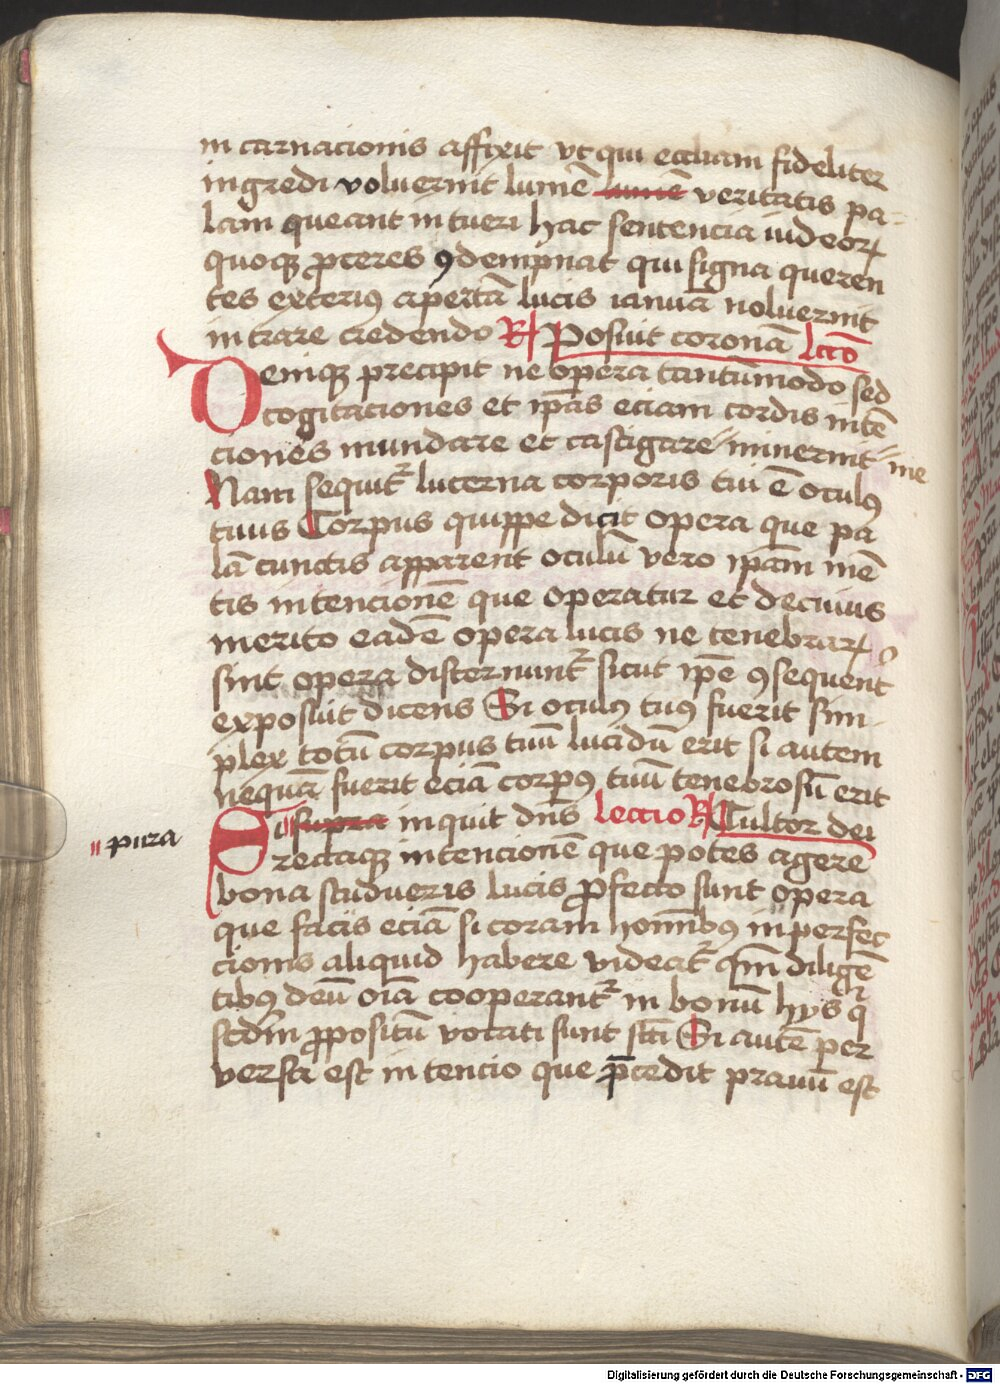 in carnacionis affixit vt qui eccliam fideliter
ingredi voluerint lumē lumē veritatis pa-
lam queant in tueri hac sentencia iudeoꝝ
quoqꝫ ꝓceres ꝯdempnat qui signa queren
tes exterius apertā lucis ianuā noluerint
intrare credendo ℟ Posuit coronā lcc̄o
Deniqꝫ precipit ne opera tantūmodo sed
cogitaciones et ip̄as eciam cordis intē
ciones mundare et castigare minerint me
Nam sequit᷑ lucerna corporis tui ē oculꝰ
tuus Corpus quippe dicit opera que pa
lā cunctis apparent oculū vero ip̄am mē
tis intencionē que operatur et de cuius
merito eadē opera lucis ne tenebraꝝ
sint opera discernunt᷑ sicut ip̄e ꝯsequent
exposuit dicens Si oculꝰ tuꝰ fuerit sim
plex totū corpus tuū lucidū erit si autem
nequā fuerit eciā corpꝰ tuū tenebrosū erit
Si supra inquit dn̄s lectio ℟ Cultor dei
pura
rectaqꝫ intencionē que potes agere
bona studueris lucis ꝓfecto sunt opera
que facis eciā si coram hom̄ibꝰ inperfec
cionis aliquid habere videat᷑ qm̄ diligē
tibꝰ deū oīa cooperant᷑ in bonū hys q
scdm̄ ꝓpositū vocati sunt sc̄ti Si autē per
versa est intencio que p̄cedit prauū est
Digitalisierung gefördert durch die Deutsche Forschungsgemeinschaft - DFG